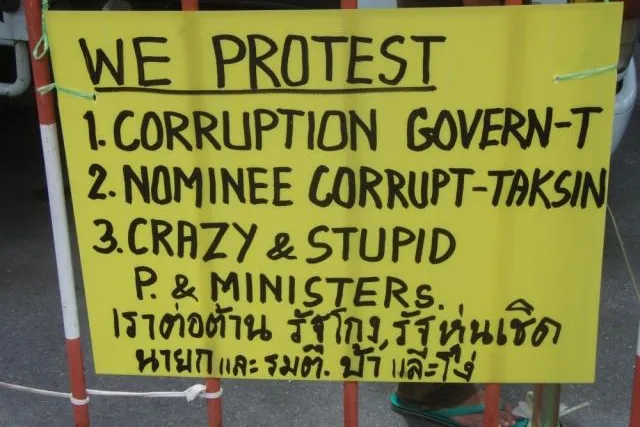 WE PROTEST
1. CORRUPTION GOVERN-T
2. NOMINEE CORRUPT-TAKSIN
3. CRAZY & STUPID
P. & MINISTERS.
เราต่อต้าน รัฐโกง, รัฐหุ่นเชิด
นายกและ รมต. บ้า และโง่